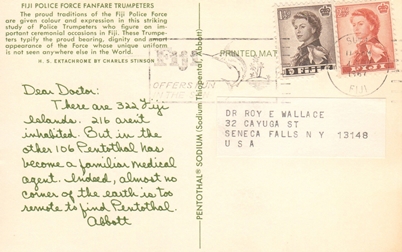 FIJI POLICE FORCE FANFARE TRUMPETERS
The proud traditions of the Fiji Police Force
are given colour and expression in this striking
study of Police Trumpeters who figure on im-
portant ceremonial occasions in Fiji. These Trumpe-
ters typify the proud bearing, dignity and smart
appearance of the Force whose unique uniform
is not seen anywhere else in the World.
H. S. EKTACHROME BY CHARLES STINSON
Dear Doctor:
There are 322 Fiji
Islands. 216 aren't
inhabited. But in the
other 106 Pentothal has
become a familiar medical
agent. Indeed, almost no
corner of the earth is too
remote to find Pentothal.
Abbott
PENTOTHAL® SODIUM (Sodium Thiopental, Abbott)
PRINTED MAT
OFFERS
FIJI
FIJI
DR ROY E WALLACE
32 CAYUGA ST
SENECA FALLS N Y 13148
U S A